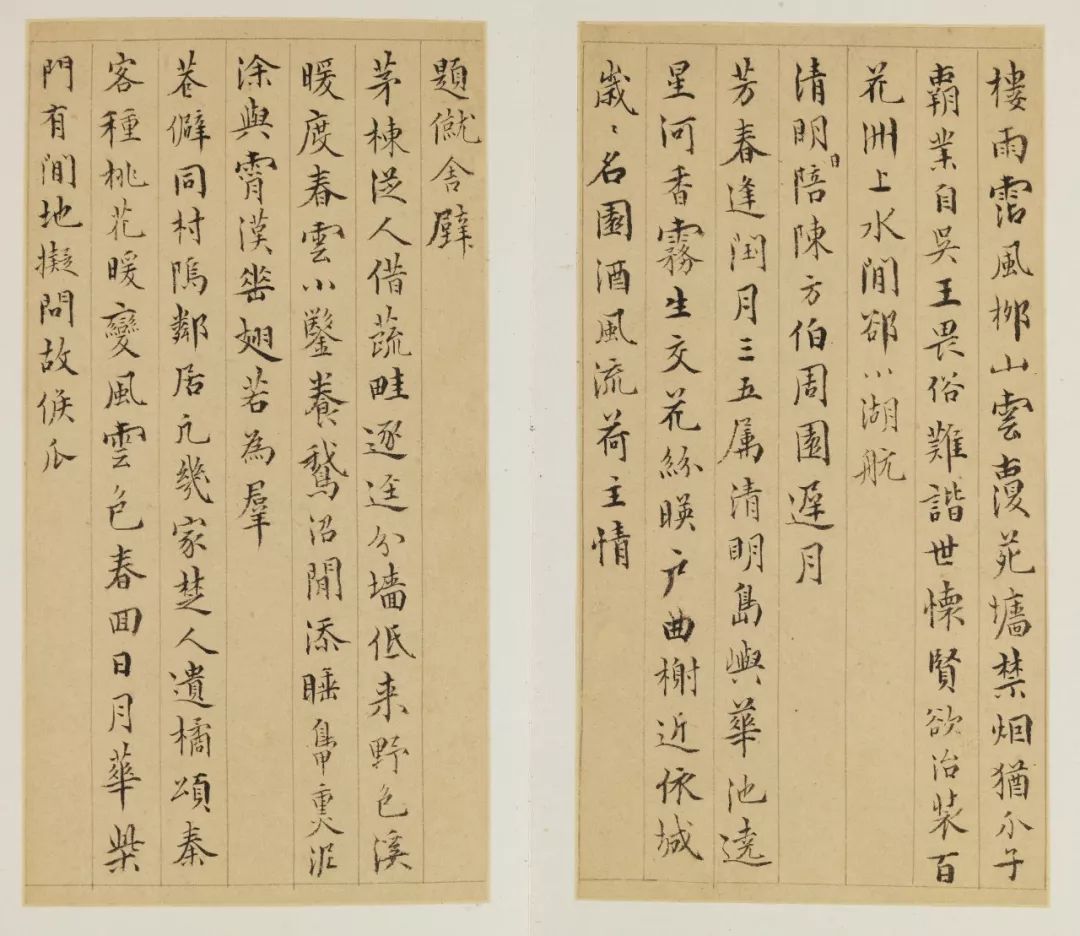 樓雨霑風栁山雲覆苑墻禁烟猶介子
霸業自吳王畏俗難諧世懷賢欲治装百
花洲上水閒郤小湖航
清明日陪陳方伯周園遲月
芳春逢閏月三五属清明島嶼華池遶
星河香霧生交花絲暎户曲榭近依城
歲〻名園酒風流荷主情
題僦舍壁
茅棟从人借蔬畦逐迳分墻低来野色溪
暖度春雲小鑿養鵝沼閒添睡鳧重泥
涂與霄漢畨翅若為羣
巷僻同村隖鄰居凢幾家楚人遺橘頌秦
客種桃花暖變風雲色春回日月華柴
門有閒地擬問故侯瓜